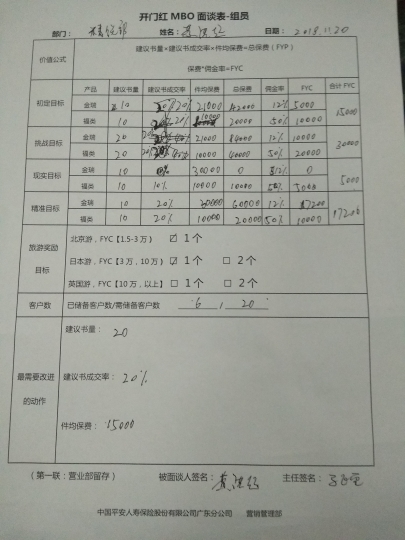 开门红 MBO 面谈表-组员
部门： 姓名： 日期：2019.11.20
价值公式
建议书量×建议书成交率×件均保费=总保费（FYP）
保费*佣金率=FYC
产品 建议书量 建议书成交率 件均保费 总保费 佣金率 FYC 合计 FYC
初定目标 金瑞 10 20% 21000 42000 12% 5000 15000
福类 10 20% 10000 20000 50% 10000
挑战目标 金瑞 20 21000 84000 12% 10000 30000
福类 20 10000 40000 50% 20000
现实目标 金瑞 10 30000 0 12% 0 5000
福类 10 10% 10000 10000 50% 5000
精准目标 金瑞 10 20% 30000 60000 12% 7200 17200
福类 10 20% 10000 20000 50% 10000
旅游奖励
目标
北京游，FYC【1.5-3 万】 ☑ 1 个
日本游，FYC【3 万，10 万】 ☑ 1 个 □ 2 个
英国游，FYC【10 万，以上】 □ 1 个 □ 2 个
客户数 已储备客户数/需储备客户数： 6 / 20
最需要改进
的动作
建议书量： 20
建议书成交率： 20%
件均保费： 15000
（第一联：营业部留存） 被面谈人签名： 主任签名：
中国平安人寿保险股份有限公司广东分公司 营销管理部